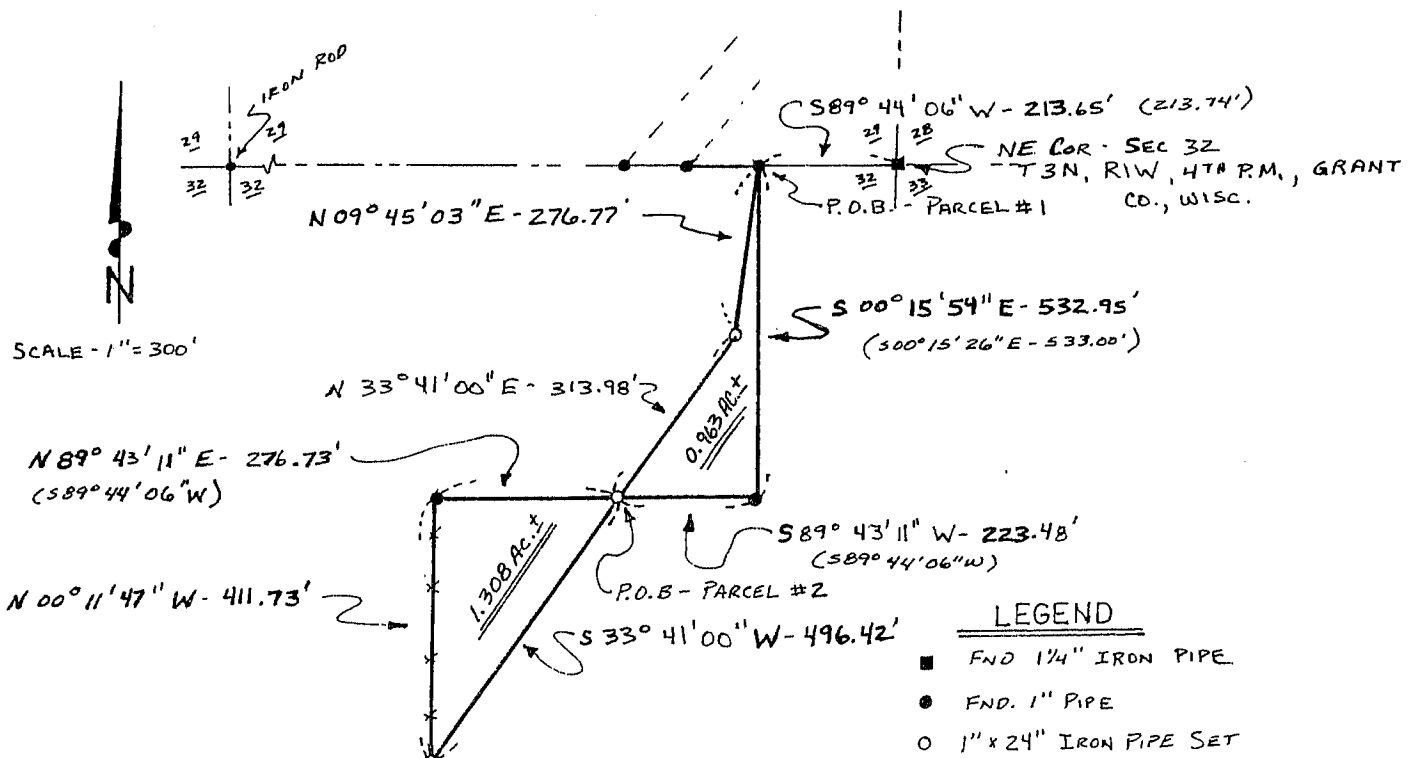 IRON ROD
S89° 44' 06" W - 213.65' (213.74')
29 29 29 28
32 32 32 33
NE COR - SEC 32
T3N, R1W, 4TH P.M., GRANT
CO., WISC.
P.O.B. - PARCEL #1
N 09° 45' 03" E - 276.77'
N
SCALE - 1" = 300'
S 00° 15' 54" E - 532.95'
(S00° 15' 26" E - 533.00')
N 33° 41' 00" E - 313.98'
0.963 AC.±
N 89° 43' 11" E - 276.73'
(S89° 44' 06" W)
S 89° 43' 11" W - 223.48'
(S89° 44' 06" W)
1.308 AC.±
P.O.B - PARCEL #2
N 00° 11' 47" W - 411.73'
S 33° 41' 00" W - 496.42'
LEGEND
FND 1 1/4" IRON PIPE
FND. 1" PIPE
1" x 24" IRON PIPE SET